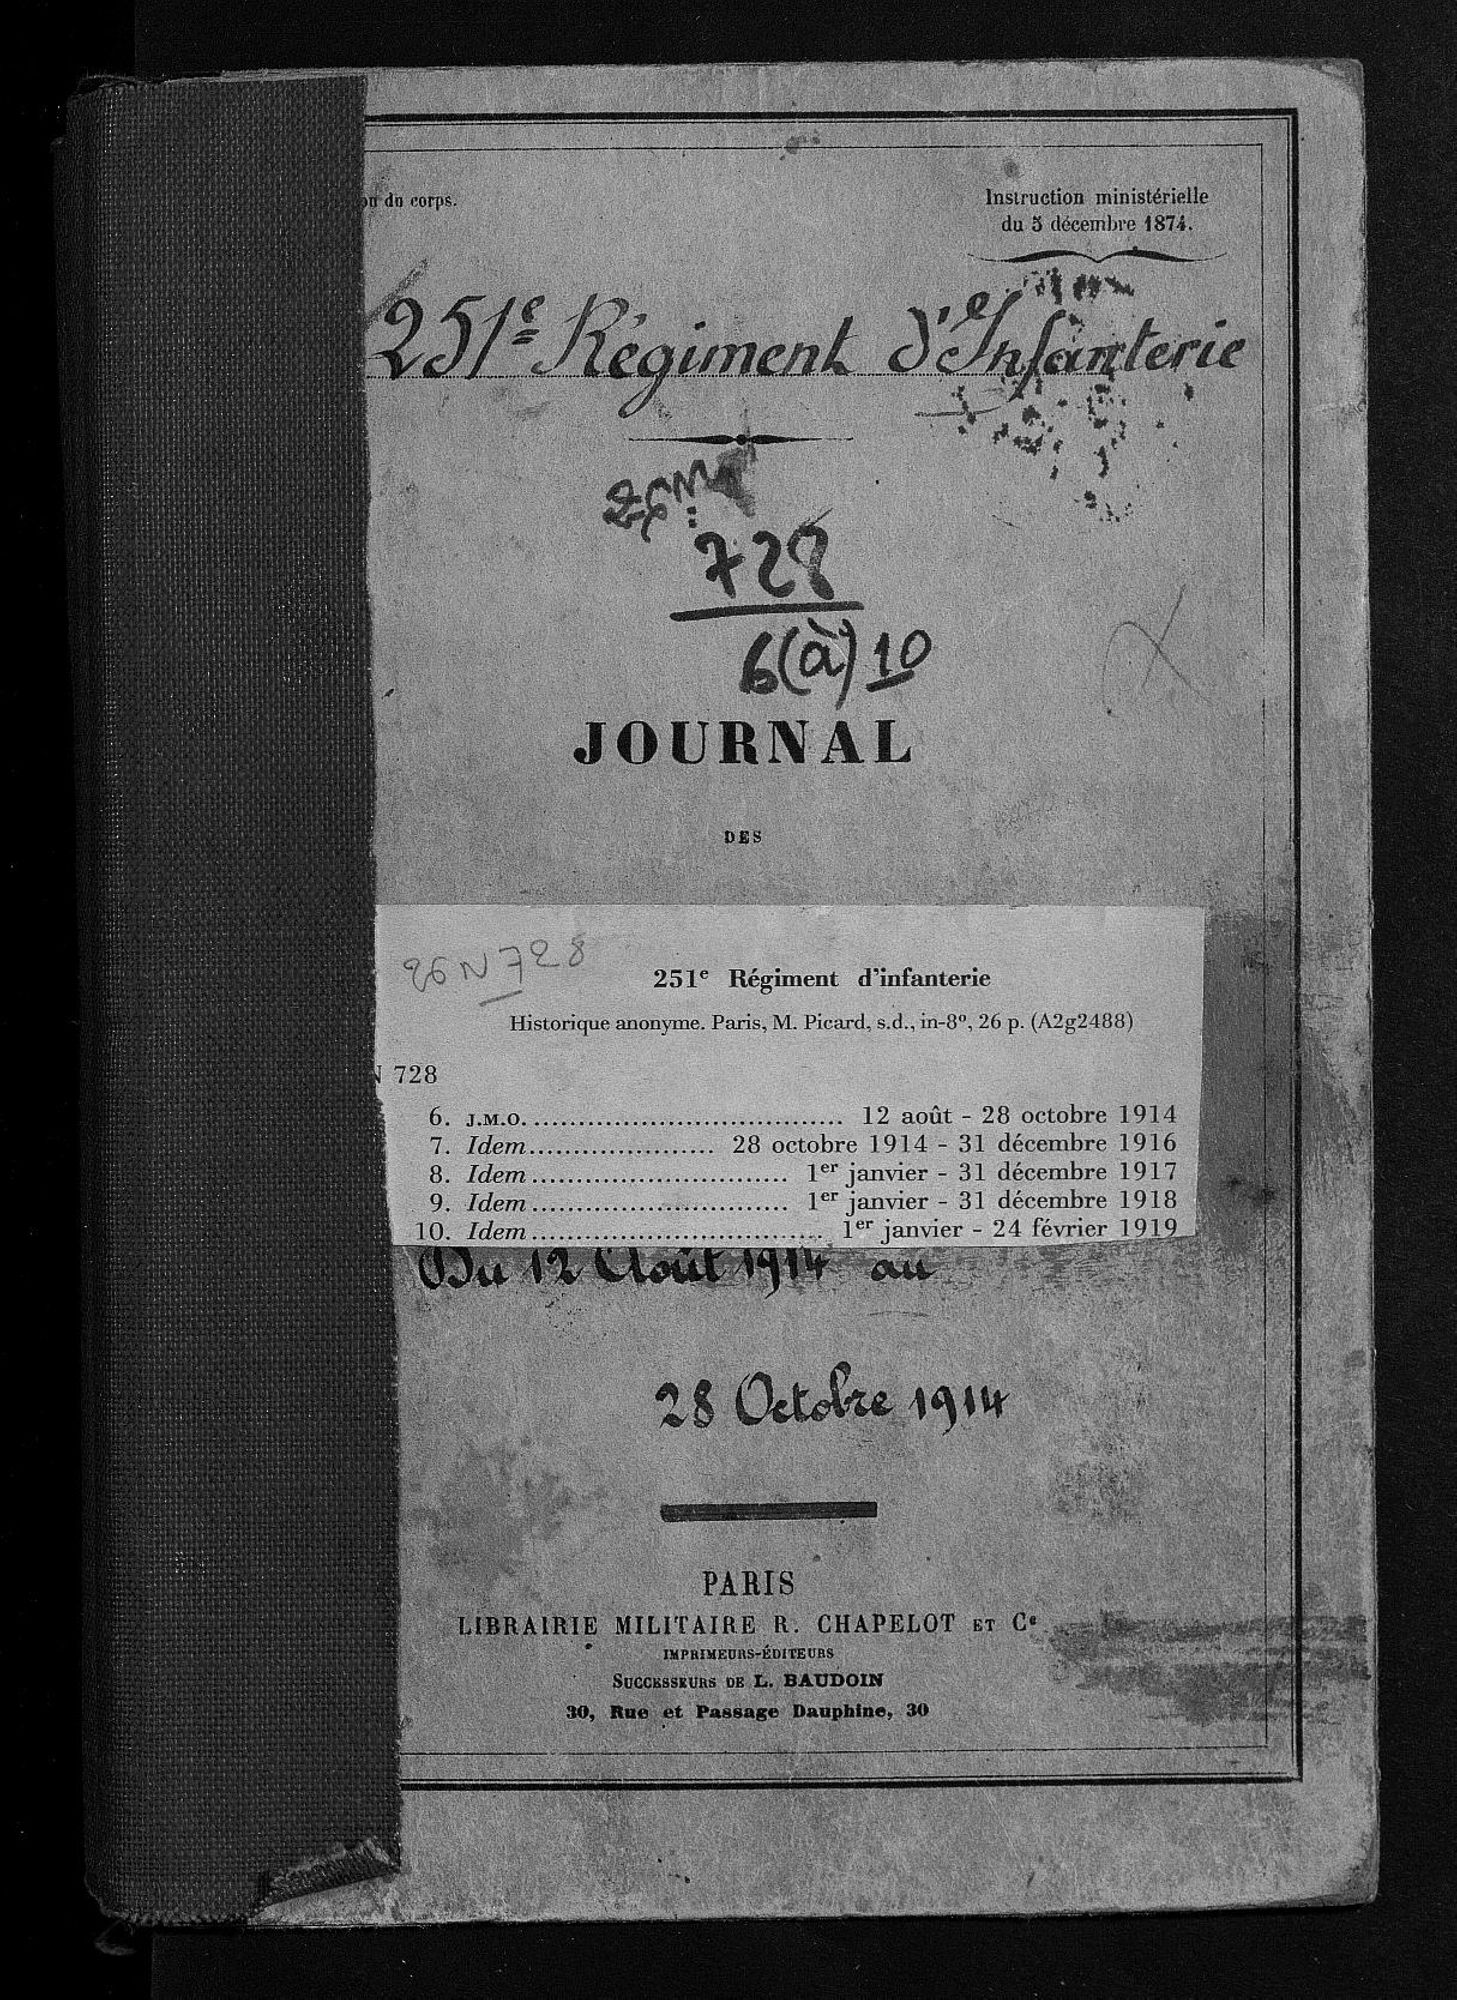 du corps.
Instruction ministérielle
du 5 décembre 1874.
251e Régiment d'Infanterie
26N
728
6(à) 10
JOURNAL
DES
26 N 728
251e Régiment d'infanterie
Historique anonyme. Paris, M. Picard, s.d., in-8º, 26 p. (A2g2488)
N 728
6. J.M.O. .................................... 12 août - 28 octobre 1914
7. Idem ..................... 28 octobre 1914 - 31 décembre 1916
8. Idem ............................. 1er janvier - 31 décembre 1917
9. Idem ............................. 1er janvier - 31 décembre 1918
10. Idem ................................. 1er janvier - 24 février 1919
Du 12 Août 1914 au
28 Octobre 1914
PARIS
LIBRAIRIE MILITAIRE R. CHAPELOT ET Ce
IMPRIMEURS-ÉDITEURS
SUCCESSEURS DE L. BAUDOIN
30, Rue et Passage Dauphine, 30